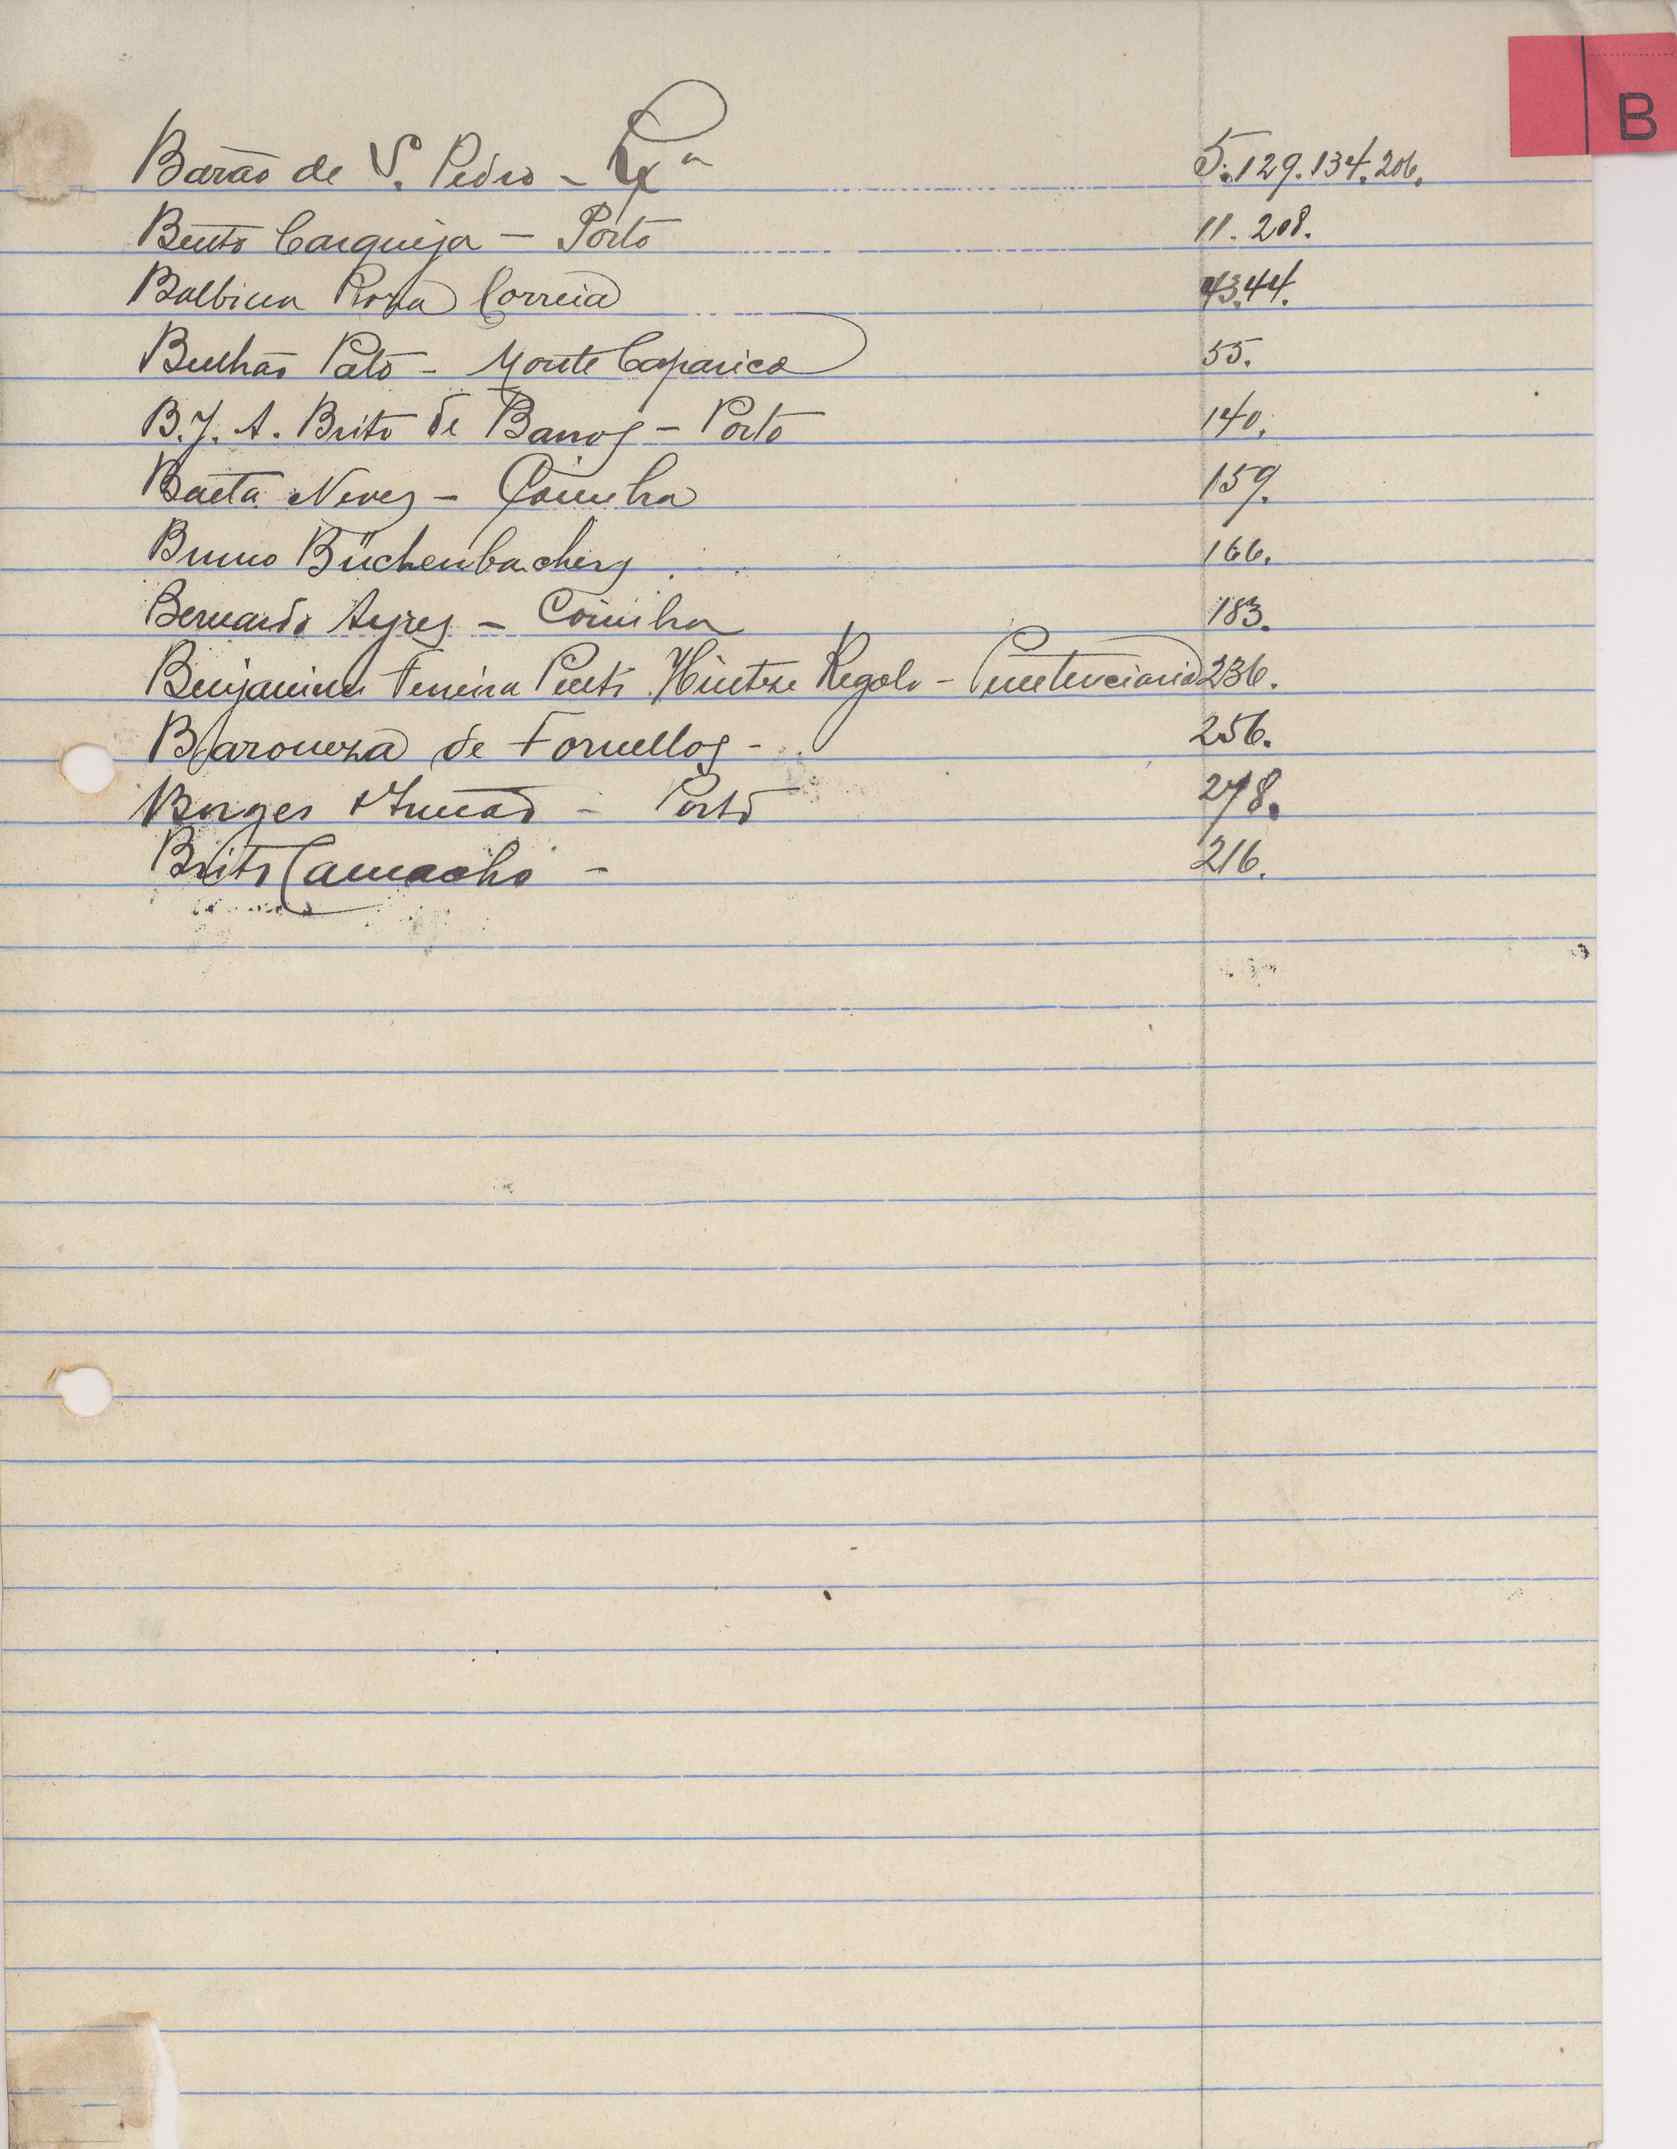 B
Barão de S. Pedro - Lxa 5. 129. 134. 206.
Bento Carqueja - Porto 11. 208.
Balbina Roza Correia 43.44.
Bulhão Pato - Monte Caparica 55.
B. J. A. Brito de Barros - Porto 140.
Baeta Neves - Coimbra 159.
Bruno Büchenbachers 166.
Bernardo Ayres - Coimbra 183.
Ferreira Hintze 236.
Baroneza de Fornellos - 256.
Borges & Irmão - Porto 278.
Brito Camacho - 216.